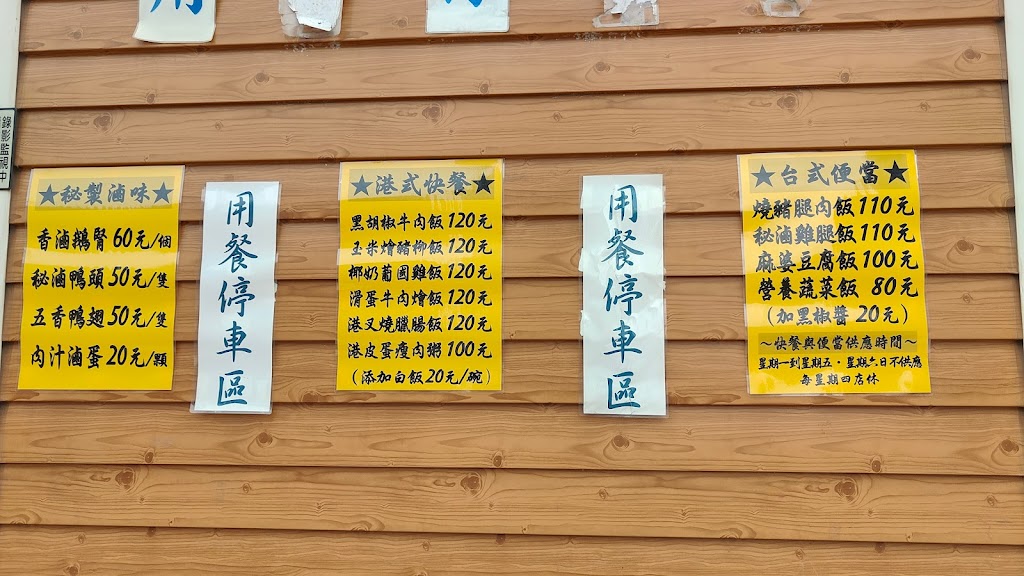 用
錄影監視中
★秘製滷味★
香滷鵝腎60元/個
秘滷鴨頭50元/隻
五香鴨翅50元/隻
肉汁滷蛋20元/顆
用餐停車區
★港式快餐★
黑胡椒牛肉飯120元
玉米燴豬柳飯120元
椰奶葡國雞飯120元
滑蛋牛肉燴飯120元
港叉燒臘腸飯120元
港皮蛋瘦肉粥100元
(添加白飯20元/碗)
用餐停車區
★台式便當★
燒豬腿肉飯110元
秘滷雞腿飯110元
麻婆豆腐飯100元
營養蔬菜飯 80元
(加黑椒醬20元)
~快餐與便當供應時間~
星期一到星期五・星期六日不供應
每星期四店休